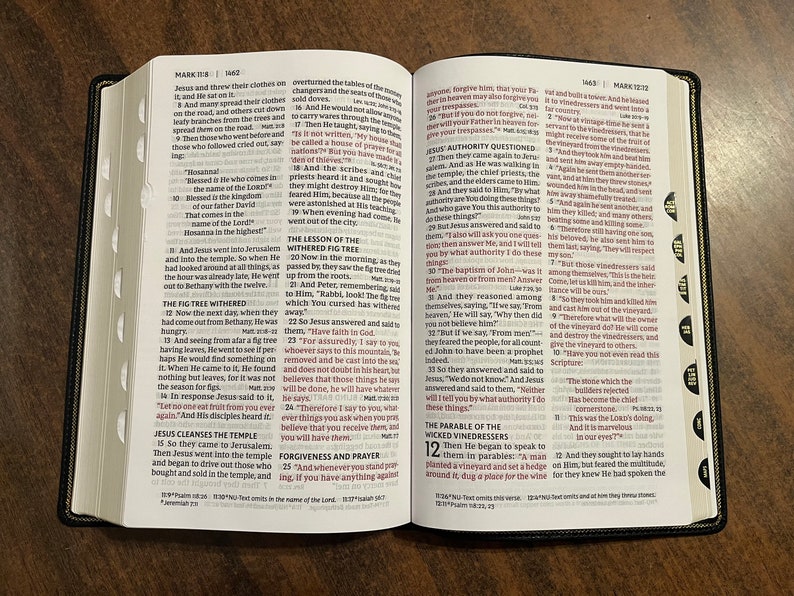 MARK 11:8 | 1462
Jesus and threw their clothes on
it, and He sat on it.
8 And many spread their clothes
on the road, and others cut down
leafy branches from the trees and
spread them on the road. Matt. 21:8
9 Then those who went before and
those who followed cried out, say-
ing:
"Hosanna!
"Blessed is He who comes in
the name of the LORD!'
10 Blessed is the kingdom
of our father David
That comes in the
name of the Lord!
Hosanna in the highest!"
11 And Jesus went into Jerusalem
and into the temple. So when He
had looked around at all things, as
the hour was already late, He went
out to Bethany with the twelve.
THE FIG TREE WITHERED
12 Now the next day, when they
had come out from Bethany, He was
hungry. Matt. 21:18–22
13 And seeing from afar a fig tree
having leaves, He went to see if per-
haps He would find something on
it. When He came to it, He found
nothing but leaves, for it was not
the season for figs. Matt. 21:19
14 In response Jesus said to it,
"Let no one eat fruit from you ever
again." And His disciples heard it.
JESUS CLEANSES THE TEMPLE
15 So they came to Jerusalem.
Then Jesus went into the temple
and began to drive out those who
bought and sold in the temple, and
overturned the tables of the money
changers and the seats of those who
sold doves.
16 And He would not allow anyone
to carry wares through the temple.
17 Then He taught, saying to them,
"Is it not written, 'My house shall
be called a house of prayer for all
nations'? But you have made it a
'den of thieves.'"
18 And the scribes and chief
priests heard it and sought how
they might destroy Him; for they
feared Him, because all the people
were astonished at His teaching.
19 When evening had come, He
went out of the city.
THE LESSON OF THE
WITHERED FIG TREE
20 Now in the morning, as they
passed by, they saw the fig tree dried
up from the roots. Matt. 21:19–22
21 And Peter, remembering, said
to Him, "Rabbi, look! The fig tree
which You cursed has withered
away."
22 So Jesus answered and said to
them, "Have faith in God.
23 "For assuredly, I say to you,
whoever says to this mountain, 'Be
removed and be cast into the sea,'
and does not doubt in his heart, but
believes that those things he says
will be done, he will have whatever
he says. Matt. 17:20; 21:21
24 "Therefore I say to you, what-
ever things you ask when you pray,
believe that you receive them, and
you will have them. Matt. 7:7
FORGIVENESS AND PRAYER
25 "And whenever you stand pray-
ing, if you have anything against
11:9 Psalm 118:26 11:10 NU-Text omits in the name of the Lord. 11:17 Isaiah 56:7
Jeremiah 7:11
1463 | MARK 12:12
anyone, forgive him, that your Fa-
ther in heaven may also forgive you
your trespasses. Col. 3:13
26 "But if you do not forgive, nei-
ther will your Father in heaven for-
give your trespasses." Matt. 6:15; 18:35
JESUS' AUTHORITY QUESTIONED
27 Then they came again to Jeru-
salem. And as He was walking in
the temple, the chief priests, the
scribes, and the elders came to Him.
28 And they said to Him, "By what
authority are You doing these things?
And who gave You this authority to
do these things?" John 5:27
29 But Jesus answered and said to
them, "I also will ask you one ques-
tion; then answer Me, and I will tell
you by what authority I do these
things:
30 "The baptism of John—was it
from heaven or from men? Answer
Me." Luke 7:29, 30
31 And they reasoned among
themselves, saying, "If we say, 'From
heaven,' He will say, 'Why then did
you not believe him?'
32 "But if we say, 'From men'"—
they feared the people, for all count-
ed John to have been a prophet
indeed. Matt. 3:5; 14:5
33 So they answered and said to
Jesus, "We do not know." And Jesus
answered and said to them, "Neither
will I tell you by what authority I do
these things."
THE PARABLE OF THE
WICKED VINEDRESSERS
12 Then He began to speak to
them in parables: "A man
planted a vineyard and set a hedge
around it, dug a place for the wine
vat and built a tower. And he leased
it to vinedressers and went into a
far country. Luke 20:9–19
2 "Now at vintage-time he sent a
servant to the vinedressers, that he
might receive some of the fruit of
the vineyard from the vinedressers.
3 "And they took him and beat him
and sent him away empty-handed.
4 "Again he sent them another ser-
vant, and at him they threw stones,
wounded him in the head, and sent
him away shamefully treated.
5 "And again he sent another, and
him they killed; and many others,
beating some and killing some.
6 "Therefore still having one son,
his beloved, he also sent him to
them last, saying, 'They will respect
my son.'
7 "But those vinedressers said
among themselves, 'This is the heir.
Come, let us kill him, and the inher-
itance will be ours.'
8 "So they took him and killed him
and cast him out of the vineyard.
9 "Therefore what will the owner
of the vineyard do? He will come
and destroy the vinedressers, and
give the vineyard to others.
10 "Have you not even read this
Scripture:
'The stone which the
builders rejected
Has become the chief
cornerstone. Ps. 118:22, 23
11 This was the LORD's doing,
And it is marvelous
in our eyes'?"
12 And they sought to lay hands
on Him, but feared the multitude,
for they knew He had spoken the
11:26 NU-Text omits this verse. 12:4 NU-Text omits and at him they threw stones.
12:11 Psalm 118:22, 23
ACT
ROM
COR
GAL
EPH
PHI
COL
TIM
TIT
HEB
JAS
PET
1 JN
JUD
REV
CONC
MAPS